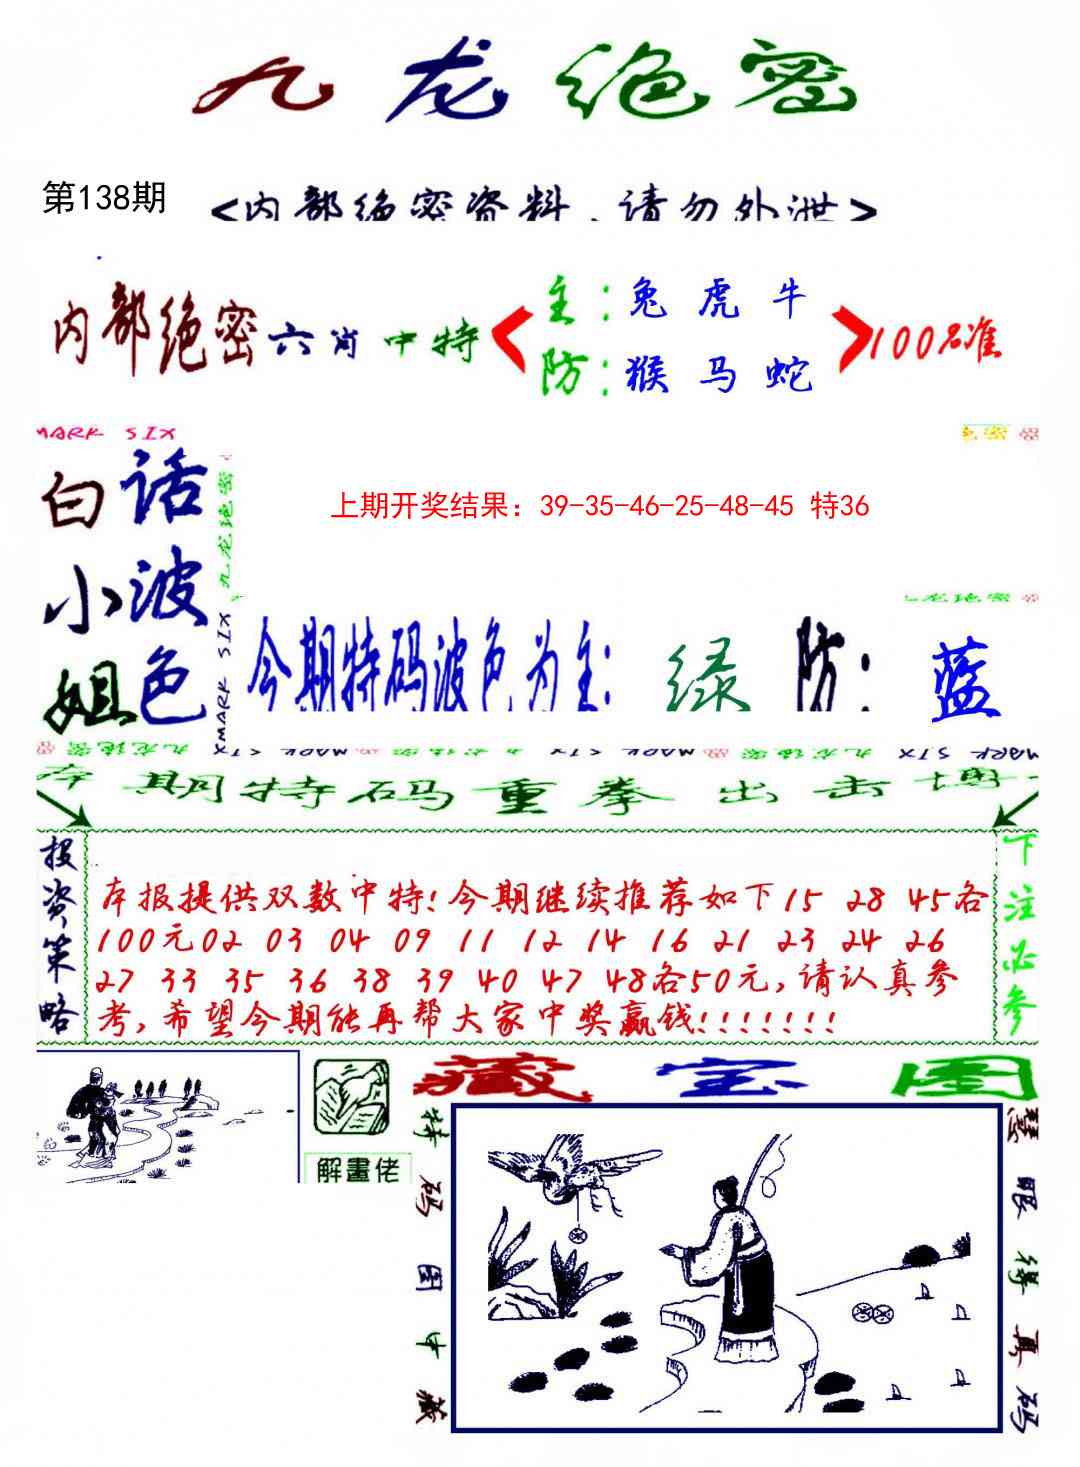 九龙绝密
第138期
<内部绝密资料．请勿外泄>
内部绝密六肖中特
主：兔 虎 牛
防：猴 马 蛇
100%准
MARK SIX
九龙绝密
白话
小波
姐色
九龙绝密
MARK SIX
上期开奖结果：39-35-46-25-48-45 特36
九龙绝密
今期特码波色为主：绿 防：蓝
九龙绝密 MARK SIX 九龙绝密 MARK SIX 九龙绝密 MARK SIX
本期特码重拳出击博
投资策略
本报提供双数中特!今期继续推荐如下15 28 45各
100元02 03 04 09 11 12 14 16 21 23 24 26
27 33 35 36 38 39 40 47 48各50元,请认真参
考,希望今期能再帮大家中奖赢钱!!!!!!!
下注必参
解畫佬
藏宝图
特码图中藏
慧眼得真码